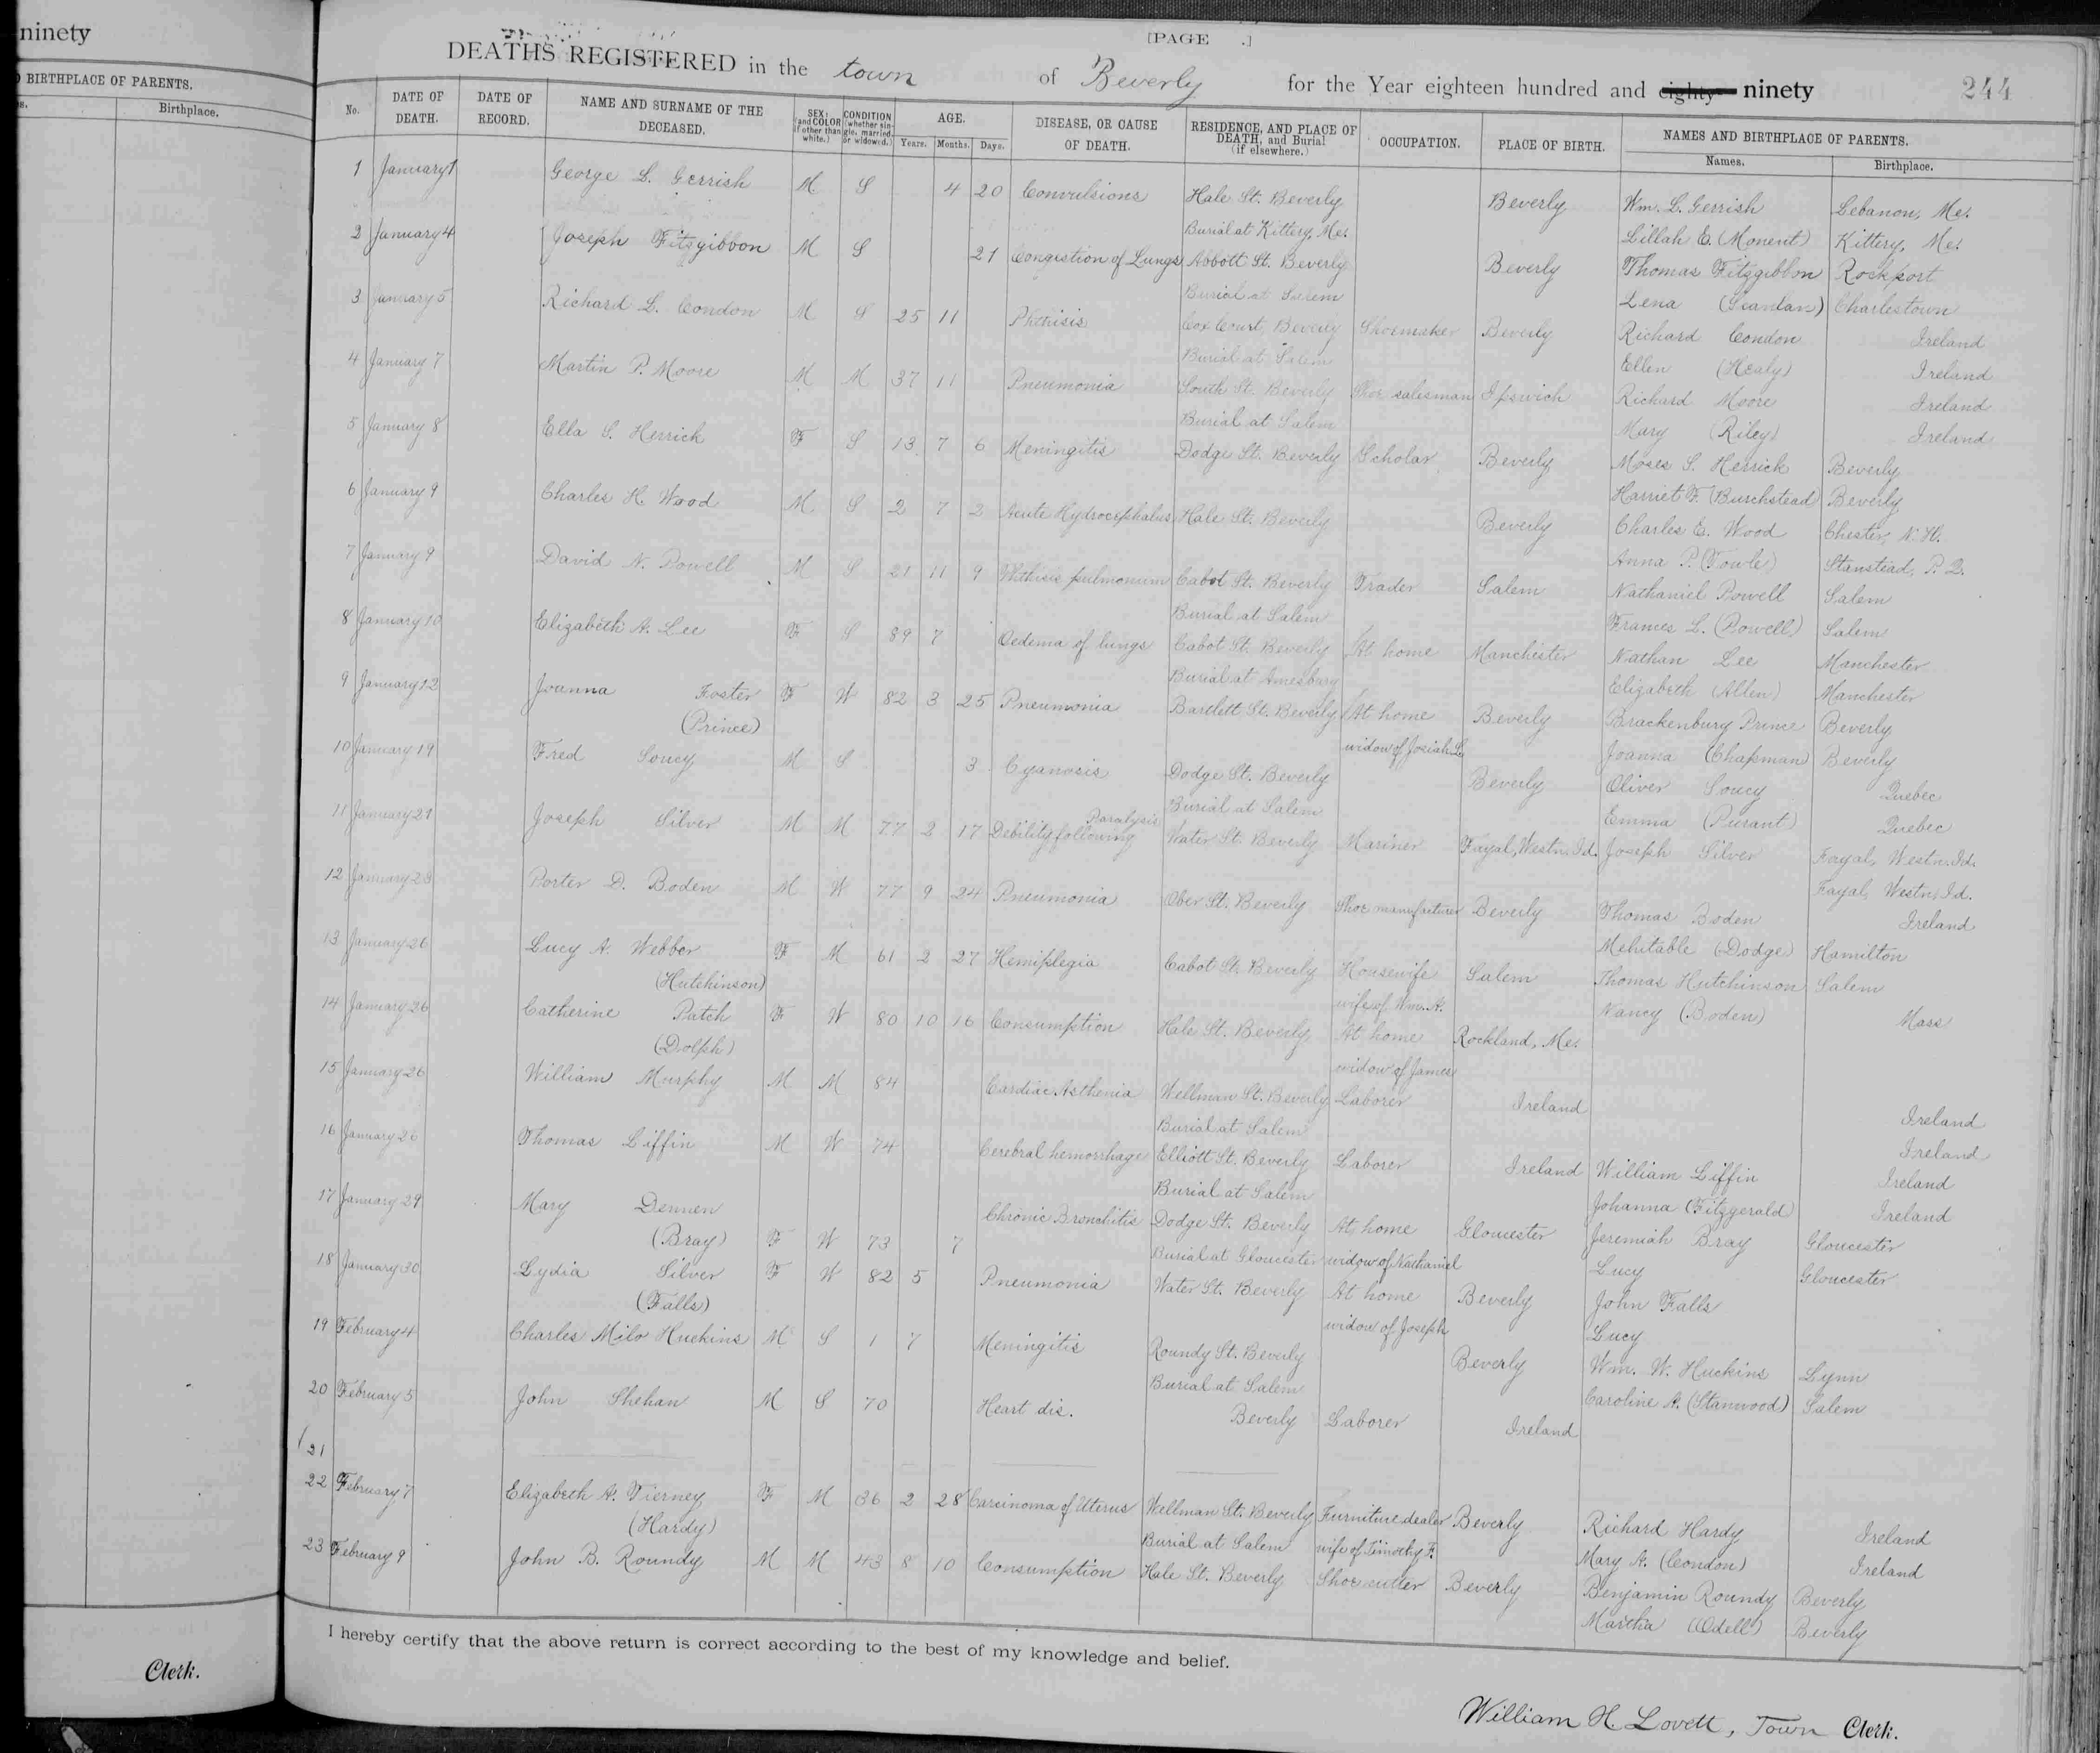 ninety
BIRTHPLACE OF PARENTS.
Birthplace.
Clerk.
[PAGE .]
DEATHS REGISTERED in the town of Beverly for the Year eighteen hundred and eighty- ninety 244
No. DATE OF DEATH. DATE OF RECORD. NAME AND SURNAME OF THE DECEASED. SEX; (and COLOR if other than white.) CONDITION (whether single, married, or widowed.) AGE. Years. Months. Days. DISEASE, OR CAUSE OF DEATH. RESIDENCE, AND PLACE OF DEATH, and Burial (if elsewhere.) OCCUPATION. PLACE OF BIRTH. NAMES AND BIRTHPLACE OF PARENTS. Names. Birthplace.
1 January 1 George L. Gerrish M S 4 20 Convulsions Hale St. Beverly Beverly Wm. L. Gerrish Lebanon, Me.
Burial at Kittery, Me. Lillah E. (Monent) Kittery, Me.
2 January 4 Joseph Fitzgibbon M S 21 Congestion of Lungs Abbott St. Beverly Beverly Thomas Fitzgibbon Rockport
Burial at Salem Lena (Scanlan) Charlestown
3 January 5 Richard L. Condon M S 25 11 Phthisis Cox Court, Beverly Shoemaker Beverly Richard Condon Ireland
Burial at Salem Ellen (Healy) Ireland
4 January 7 Martin P. Moore M M 37 11 Pneumonia South St. Beverly Shoe salesman Ipswich Richard Moore Ireland
Burial at Salem Mary (Riley) Ireland
5 January 8 Ella S. Herrick F S 13 7 6 Meningitis Dodge St. Beverly Scholar Beverly Moses S. Herrick Beverly
Harriet F. (Burchstead) Beverly
6 January 9 Charles H. Wood M S 2 7 2 Acute Hydrocephalus Hale St. Beverly Beverly Charles E. Wood Chester, N.H.
Anna P. (Towle) Stanstead, P.Q.
7 January 9 David N. Powell M S 21 11 9 Phthisis pulmonum Cabot St. Beverly Trader Salem Nathaniel Powell Salem
Burial at Salem Frances L. (Powell) Salem
8 January 10 Elizabeth A. Lee F S 89 7 Oedema of lungs Cabot St. Beverly At home Manchester Nathan Lee Manchester
Burial at Amesbury Elizabeth (Allen) Manchester
9 January 12 Joanna Foster F W 82 3 25 Pneumonia Bartlett St. Beverly At home Beverly Brackenbury Prince Beverly
(Prince) widow of Josiah L. Joanna (Chapman) Beverly
10 January 19 Fred Soucy M S 3 Cyanosis Dodge St. Beverly Beverly Oliver Soucy Quebec
Burial at Salem Emma (Durant) Quebec
11 January 21 Joseph Silver M M 77 2 17 Debility following Paralysis Water St. Beverly Mariner Fayal, Westn. Id. Joseph Silver Fayal, Westn. Id.
Fayal, Westn. Id.
12 January 23 Porter D. Boden M W 77 9 24 Pneumonia Ober St. Beverly Shoe manufacturer Beverly Thomas Boden Ireland
Mehitable (Dodge) Hamilton
13 January 26 Lucy A. Webber F M 61 2 27 Hemiplegia Cabot St. Beverly Housewife Salem Thomas Hutchinson Salem
(Hutchinson) wife of Wm. A. Nancy (Boden) Mass
14 January 26 Catherine Patch F W 80 10 16 Consumption Hale St. Beverly At home Rockland, Me.
(Dolph) widow of James
15 January 26 William Murphy M M 84 Cardiac Asthenia Wellman St. Beverly Laborer Ireland Ireland
Burial at Salem Ireland
16 January 26 Thomas Liffin M W 74 Cerebral hemorrhage Elliott St. Beverly Laborer Ireland William Liffin Ireland
Burial at Salem Johanna (Fitzgerald) Ireland
17 January 29 Mary Dennen Chronic Bronchitis Dodge St. Beverly At home Gloucester Jeremiah Bray Gloucester
(Bray) F W 73 7 Burial at Gloucester widow of Nathaniel Lucy Gloucester
18 January 30 Lydia Silver F W 82 5 Pneumonia Water St. Beverly At home Beverly John Falls
(Falls) widow of Joseph Lucy
19 February 4 Charles Milo Huckins M S 1 7 Meningitis Roundy St. Beverly Beverly Wm. W. Huckins Lynn
Burial at Salem Caroline A. (Stanwood) Salem
20 February 5 John Shehan M S 70 Heart dis. Beverly Laborer Ireland
21
22 February 7 Elizabeth A. Tierney F M 36 2 28 Carcinoma of Uterus Wellman St. Beverly Furniture dealer Beverly Richard Hardy Ireland
(Hardy) Burial at Salem wife of Timothy F. Mary A. (Condon) Ireland
23 February 9 John B. Roundy M M 43 8 10 Consumption Hale St. Beverly Shoe cutter Beverly Benjamin Roundy Beverly
Martha (Odell) Beverly
I hereby certify that the above return is correct according to the best of my knowledge and belief.
William H. Lovett, Town Clerk.